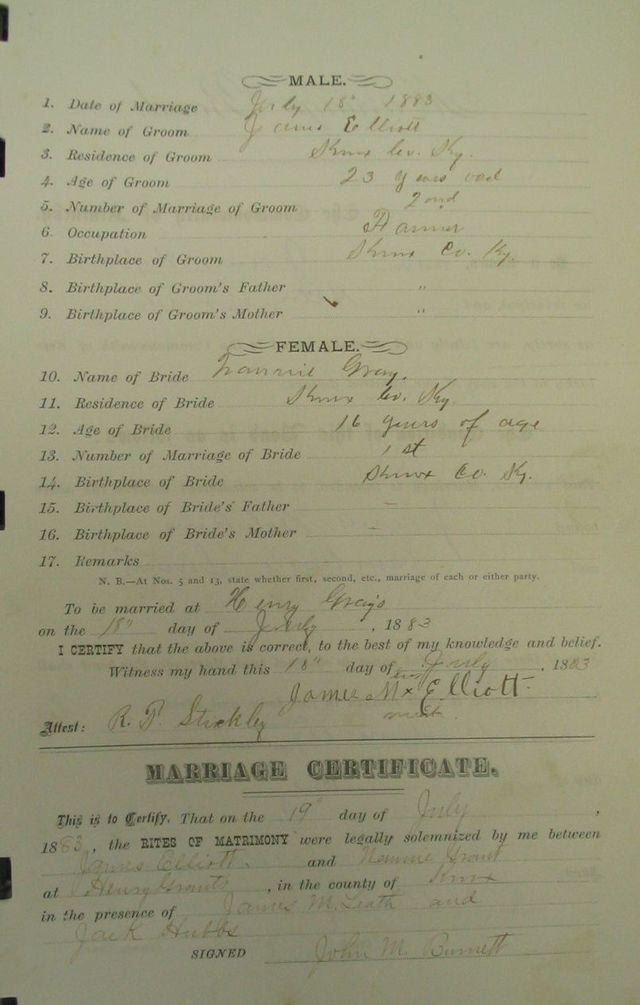 MALE.
1. Date of Marriage July 18" 1883
2. Name of Groom James Elliott
3. Residence of Groom Knox Co. Ky.
4. Age of Groom 23 years
5. Number of Marriage of Groom 2ond
6. Occupation Farmer
7. Birthplace of Groom Knox Co. Ky.
8. Birthplace of Groom's Father "
9. Birthplace of Groom's Mother "
FEMALE.
10. Name of Bride Gray.
11. Residence of Bride Knox Co. Ky.
12. Age of Bride 16 years of age
13. Number of Marriage of Bride 1st
14. Birthplace of Bride Knox Co. Ky.
15. Birthplace of Bride's Father –
16. Birthplace of Bride's Mother –
17. Remarks
N. B.—At Nos. 5 and 13, state whether first, second, etc., marriage of each or either party.
To be married at Henry Gray's
on the 18" day of July, 1883
I CERTIFY that the above is correct, to the best of my knowledge and belief.
Witness my hand this 18" day of July, 1883
James M x Elliott
Attest: R. P. Stickley
MARRIAGE CERTIFICATE.
This is to Certify, That on the 19" day of July,
1883, the RITES OF MATRIMONY were legally solemnized by me between
James Elliott. and Nannie Grant
at Henry Grants, in the county of Knox
in the presence of James M. Leath and
Jack Hubbs
SIGNED John M. Burnett